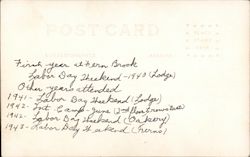 POST CARD
First year at Fern Brook
Labor Day Weekend - 1940 (Lodge)
Other years attended
1941 - Labor Day Weekend (Lodge)
1942 - Camp - June
1942 - Labor Day Weekend
1943 - Labor Day Weekend (Ferns)